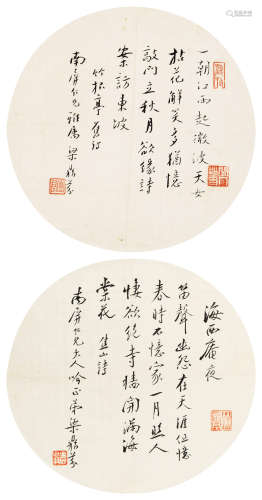 一朝江雨起微波天女
拈花解笑多猶憶
敲門立秋月欲緣詩
案訪東坡
竹松亭舊
南屏仁兄雅屬 梁鼎芬
海西庵夜
笛聲幽怨在天涯但憶
春時不憶家一月照人
悽欲絕寺牆開滿海
棠花 焦山詩
南屏仁兄大人吟正弟梁鼎芬